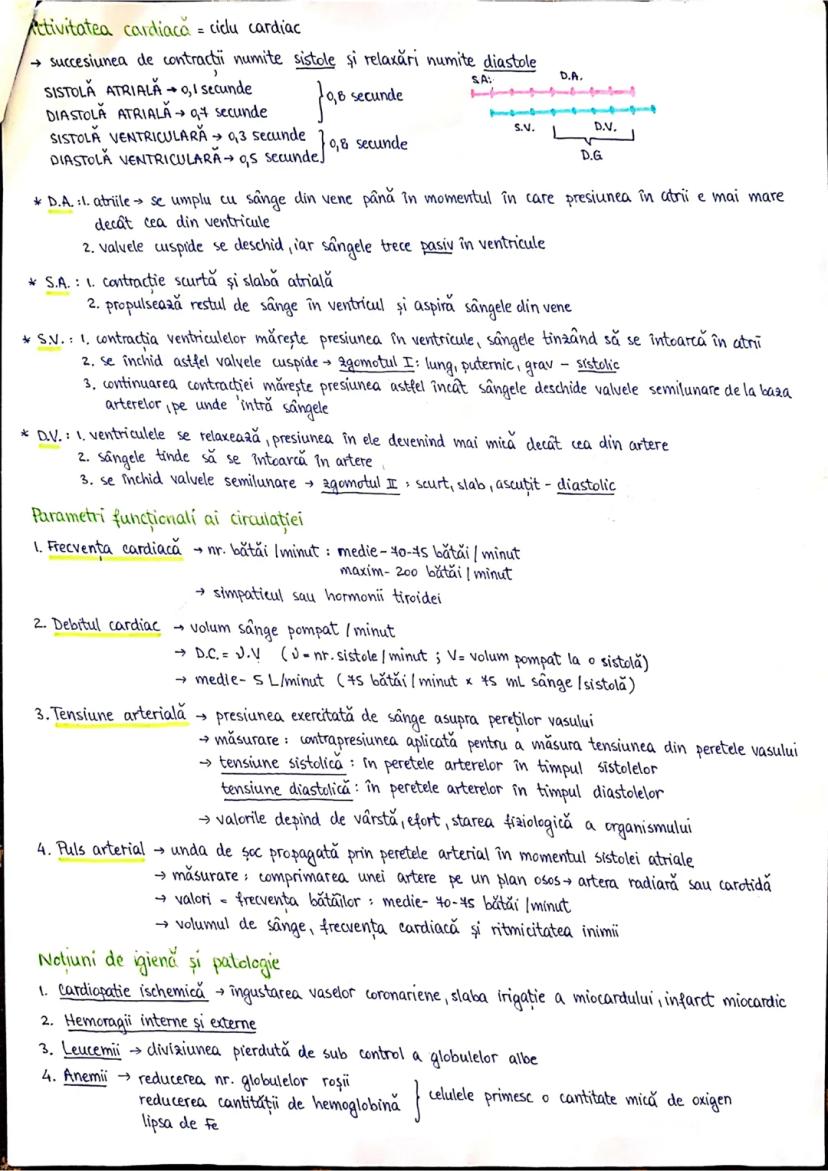 Activitatea cardiacă = ciclu cardiac
→ succesiunea de contracții numite sistole și relaxări numite diastole
SISTOLĂ ATRIALĂ → 0,1 secunde
DIASTOLĂ ATRIALĂ → 0,7 secunde
} 0,8 secunde
SISTOLĂ VENTRICULARĂ → 0,3 secunde
DIASTOLĂ VENTRICULARĂ → 0,5 secunde
} 0,8 secunde
S.A. D.A.
S.V. D.V.
D.G
* D.A.: 1. atriile → se umplu cu sânge din vene până în momentul în care presiunea în atrii e mai mare
decât cea din ventricule
2. valvele cuspide se deschid, iar sângele trece pasiv în ventricule
* S.A.: 1. contracție scurtă și slabă atrială
2. propulsează restul de sânge în ventricul și aspiră sângele din vene
* S.V.: 1. contracția ventriculelor mărește presiunea în ventricule, sângele tinzând să se întoarcă în atrii
2. se închid astfel valvele cuspide → zgomotul I: lung, puternic, grav - sistolic
3. continuarea contracției mărește presiunea astfel încât sângele deschide valvele semilunare de la baza
arterelor, pe unde intră sângele
* D.V.: 1. ventriculele se relaxează, presiunea în ele devenind mai mică decât cea din artere
2. sângele tinde să se întoarcă în artere
3. se închid valvele semilunare → zgomotul II: scurt, slab, ascuțit - diastolic
Parametri funcționali ai circulației
1. Frecvența cardiacă → nr. bătăi/minut: medie- 70-75 bătăi/minut
maxim- 200 bătăi/minut
→ simpaticul sau hormonii tiroidei
2. Debitul cardiac → volum sânge pompat/minut
→ D.C. = ν.V (ν = nr. sistole/minut; V= volum pompat la o sistolă)
→ medie- 5 L/minut (75 bătăi/minut x 75 mL sânge/sistolă)
3. Tensiune arterială → presiunea exercitată de sânge asupra pereților vasului
→ măsurare: contrapresiunea aplicată pentru a măsura tensiunea din peretele vasului
→ tensiune sistolică: în peretele arterelor în timpul sistolelor
tensiune diastolică: în peretele arterelor în timpul diastolelor
→ valorile depind de vârstă, efort, starea fiziologică a organismului
4. Puls arterial → unda de șoc propagată prin peretele arterial în momentul sistolei atriale
→ măsurare: comprimarea unei artere pe un plan osos → artera radiară sau carotidă
→ valori = frecvența bătăilor: medie- 70-75 bătăi/minut
→ volumul de sânge, frecvența cardiacă și ritmicitatea inimii
Noțiuni de igienă și patologie
1. Cardiopatie ischemică → îngustarea vaselor coronariene, slaba irigație a miocardului, infarct miocardic
2. Hemoragii interne și externe
3. Leucemii → diviziunea pierdută de sub control a globulelor albe
4. Anemii → reducerea nr. globulelor roșii
reducerea cantității de hemoglobină
lipsa de Fe
} celulele primesc o cantitate mică de oxigen